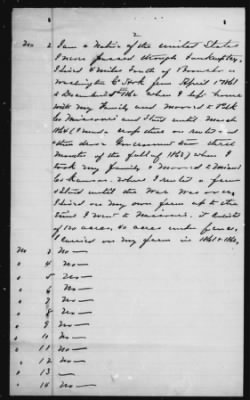 2
No 2 I am a native of the United States
I never passed through Bankruptcy,
I lived 8 miles South of
Washington Co Ark from April 1861
to December 1862 when I left home
with my Family and moved to Polk
Co Missouri and lived until March
1864 (I made a crop there on rented and
then drove a Government team three
Months of the fall of 1863) when I
took my family & moved to Miami
Co Kansas. where I rented a farm
& lived until the War was over,
I lived on my own farm up to the
time I went to Missouri. it consists
of 120 acres, 40 acres under fence,
I carried on my farm in 1861 & 1862,
No 3 No —
4 No —
5 No —
6 No —
7 No —
8 No —
9 No —
10 No —
11 No —
12 No —
13 —
14 No —